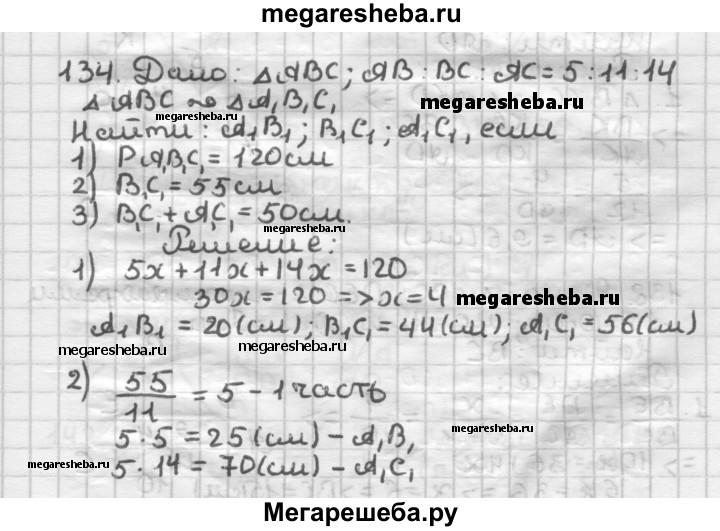 megaresheba.ru
134. Дано: △ABC; AB : BC : AC = 5 : 11 : 14
△ABC ∾ △A₁B₁C₁ megaresheba.ru
Найти: A₁B₁; B₁C₁; A₁C₁, если
megaresheba.ru
1) PA₁B₁C₁ = 120 см
2) B₁C₁ = 55 см
3) B₁C₁ + A₁C₁ = 50 см.
megaresheba.ru Решение: megaresheba.ru
1) 5x + 11x + 14x = 120
30x = 120 => x = 4 megaresheba.ru
A₁B₁ = 20 (см); B₁C₁ = 44 (см); A₁C₁ = 56 (см)
megaresheba.ru megaresheba.ru
2) 55/11 = 5 – 1 часть
5 · 5 = 25 (см) – A₁B₁ megaresheba.ru
megaresheba.ru 5 · 14 = 70 (см) – A₁C₁ megaresheba.ru
Мегарешеба.ру